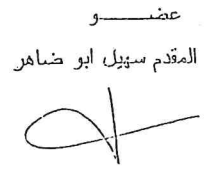 عضـــو
المقدم سهيل ابو ضاهر